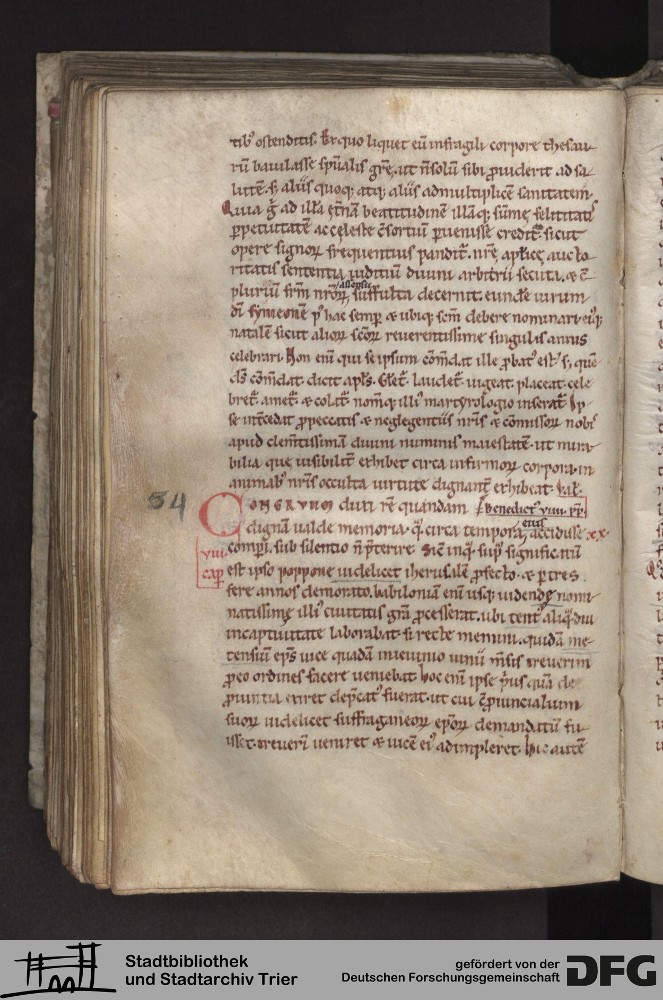 tib᷒ ostenditis. Ex quo liquet eū in fragili corpore thesau-
rū baiulasse sp̄ualis grē. ut n̄ solū sibi p̄uiderit ad sa-
lutē. s; aliis quoq; atq; aliis ad multiplicē sanitatem.
Quia g̊ ad illā et̄nā beatitudinē illāq; sūmę felicitatis
ꝑpetuitatē ac celeste c̄sortiū ꝑuenisse credit᷒. sicut
opere signoꝝ frequentius pandit᷒. nr̄ę apl̄icę aucto-
ritatis sententia iuditiū diuini arbitrii secuta. & c̄
plurimū frm̄ nr̄oꝝ assensu suffulta decernit. eunde uirum
dī symeonē p᷒ hac semꝑ & ubiq; scm̄ debere nominari. ei᷒q;
natalē sicut alioꝝ scōꝝ reuerentissime singulis annis
celebrari. Non enī qui se ipsum cōmdat ille ꝓbat᷒ est. s; quē
ds̄ cōmdat. dicit apl̄s. laudet᷒. uigeat. placeat. cele
bret᷒. amet᷒. & colat᷒. nomq; illi᷒ martyrologio inserat᷒. Ip
se int̄cedat ꝓ peccatis & neglegentiis nr̄is & cōmissoꝝ nob᷒
apud clem̄tissimā diuini numinis maiestatē. ut mira-
bilia quę uisibilit̄ exhibet circa infirmoꝝ corpora. in
animab᷒ nr̄is occulta uirtute dignant̄ exhibeat. Val̄.
34 Congruum duxi rē quandam benedict᷒ viiii. pp.
dignā ualde memoria. q̄ circa tempora eius accidisse xx.
viii. comperi. sub silentio n̄ p̄terire. Sic inq̄ sup᷒ significatū
cap̄ est ipso poppone uidelicet iherusalē ꝓfecto. & ꝑ tres
fere annos demorato. babiloniam enī usq; uidendę nomi-
natissimę illi᷒ ciuitatis grā ꝓcesserat. ubi tent᷒ aliq̄diu
in captiuitate laborabat. si recte memini. quidā me-
tensiū ep̄s uice quadā in ieiunio iunii m̄sis treuerim
ꝓ eo ordines facere ueniebat. hoc enī ipse p̄us quā de
ꝓuintia exiret dep̄cat᷒ fuerat. ut cui c̄ꝓuincialium
suoꝝ uidelicet suffraganeoꝝ ep̄oꝝ demandatū fu-
isset. treueri ueniret & uicē ei᷒ adimpleret. hic autē
Stadtbibliothek
und Stadtarchiv Trier
gefördert von der
Deutschen Forschungsgemeinschaft
DFG